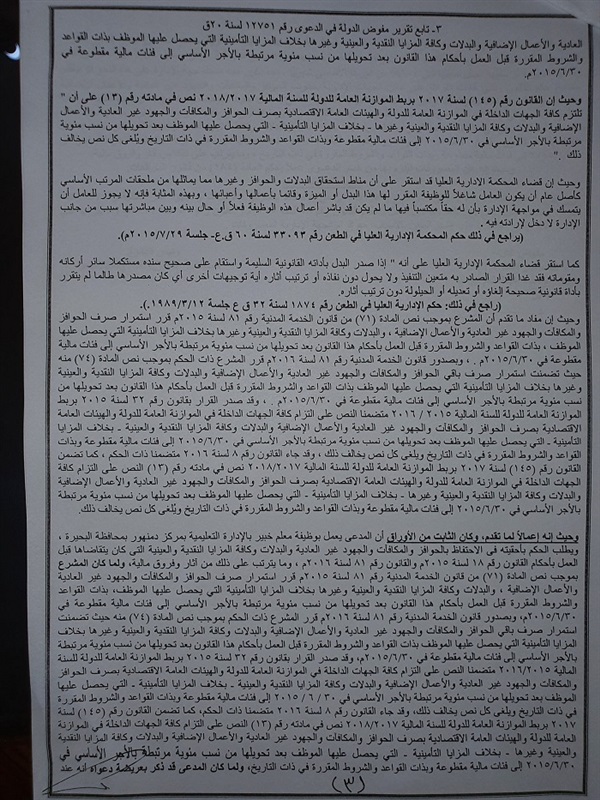 ٣- تابع تقرير مفوض الدولة في الدعوى رقم ١٢٧٥١ لسنة ٢٠ق
العادية والأعمال الإضافية والبدلات وكافة المزايا النقدية والعينية وغيرها بخلاف المزايا التأمينية التي يحصل عليها الموظف بذات القواعد
والشروط المقررة قبل العمل بأحكام هذا القانون بعد تحويلها من نسب مئوية مرتبطة بالأجر الأساسي إلى فئات مالية مقطوعة في
٢٠١٥/٦/٣٠م.
وحيث إن القانون رقم (١٤٥) لسنة ٢٠١٧ بربط الموازنة العامة للدولة للسنة المالية ٢٠١٨/٢٠١٧ نص في مادته رقم (١٣) على أن "
تلتزم كافة الجهات الداخلة في الموازنة العامة للدولة والهيئات العامة الاقتصادية بصرف الحوافز والمكافآت والجهود غير العادية والأعمال
الإضافية والبدلات وكافة المزايا النقدية والعينية وغيرها - بخلاف المزايا التأمينية - التي يحصل عليها الموظف بعد تحويلها من نسب مئوية
مرتبطة بالأجر الأساسي في ٢٠١٥/٦/٣٠ إلى فئات مالية مقطوعة وبذات القواعد والشروط المقررة في ذات التاريخ ويُلغى كل نص يخالف
ذلك ."
وحيث إن قضاء المحكمة الادارية العليا قد استقر على أن مناط استحقاق البدلات والحوافز وغيرها مما يماثلها من ملحقات المرتب الأساسي
كأصل عام أن يكون العامل شاغلاً للوظيفة المقرر لها هذا البدل أو الميزة وقائما بأعمالها وأعبائها ، وبهذه المثابة فإنه لا يجوز للعامل أن
يتمسك في مواجهة الإدارة بأن له حقاً مكتسباً فيها ما لم يكن قد باشر أعمال هذه الوظيفة فعلاً أو حال بينه وبين مباشرتها سبب من جانب
الإدارة لا دخل لإرادته فيه .
(يراجع في ذلك حكم المحكمة الإدارية العليا في الطعن رقم ٣٣٠٩٣ لسنة ٦٠ ق.ع- جلسة ٢٠١٥/٧/٢٩م).
كما استقر قضاء المحكمة الإدارية العليا على أنه " إذا صدر البدل بأداته القانونية السليمة واستقام على صحيح سنده مستكملا سائر أركانه
ومقوماته فقد غدا القرار الصادر به متعين التنفيذ ولا يحول دون نفاذه أو ترتيب آثاره أية توجيهات أخرى أي كان مصدرها طالما لم يتقرر
بأداة قانونية صحيحة إلغاؤه أو تعديله أو الحيلولة دون ترتيب آثاره.
(راجع في ذلك: حكم الإدارية العليا في الطعن رقم ١٨٧٤ لسنة ٣٢ ق ع جلسة ١٩٨٩/٣/١٢.).
وحيث إن مفاد ما تقدم أن المشرع بموجب نص المادة (٧١) من قانون الخدمة المدنية رقم ٨١ لسنة ٢٠١٥م قرر استمرار صرف الحوافز
والمكافآت والجهود غير العادية والأعمال الإضافية ، والبدلات وكافة المزايا النقدية والعينية وغيرها بخلاف المزايا التأمينية التي يحصل عليها
الموظف ، بذات القواعد والشروط المقررة قبل العمل بأحكام هذا القانون بعد تحويلها من نسب مئوية مرتبطة بالأجر الأساسي إلى فئات مالية
مقطوعة في ٢٠١٥/٦/٣٠م . ، وبصدور قانون الخدمة المدنية رقم ٨١ لسنة ٢٠١٦م قرر المشرع ذات الحكم بموجب نص المادة (٧٤) منه
حيث تضمنت استمرار صرف باقي الحوافز والمكافآت والجهود غير العادية والأعمال الإضافية والبدلات وكافة المزايا النقدية والعينية
وغيرها بخلاف المزايا التأمينية التي يحصل عليها الموظف بذات القواعد والشروط المقررة قبل العمل بأحكام هذا القانون بعد تحويلها من
نسب مئوية مرتبطة بالأجر الأساسي إلى فئات مالية مقطوعة في ٢٠١٥/٦/٣٠م . ، وقد صدر القرار بقانون رقم ٣٢ لسنة ٢٠١٥ بربط
الموازنة العامة للدولة للسنة المالية ٢٠١٥ / ٢٠١٦ متضمنا النص على التزام كافة الجهات الداخلة في الموازنة العامة للدولة والهيئات العامة
الاقتصادية بصرف الحوافز والمكافآت والجهود غير العادية والأعمال الإضافية والبدلات وكافة المزايا النقدية والعينية وغيرها - بخلاف المزايا
التأمينية - التي يحصل عليها الموظف بعد تحويلها من نسب مئوية مرتبطة بالأجر الأساسي في ٢٠١٥/٦/٣٠ إلى فئات مالية مقطوعة وبذات
القواعد والشروط المقررة في ذات التاريخ ويلغى كل نص يخالف ذلك ، وقد جاء القانون رقم ٨ لسنة ٢٠١٦ متضمنا ذات الحكم ، كما تضمن
القانون رقم (١٤٥) لسنة ٢٠١٧ بربط الموازنة العامة للدولة للسنة المالية ٢٠١٨/٢٠١٧ نص في مادته رقم (١٣) النص على التزام كافة
الجهات الداخلة في الموازنة العامة للدولة والهيئات العامة الاقتصادية بصرف الحوافز والمكافآت والجهود غير العادية والأعمال الإضافية
والبدلات وكافة المزايا النقدية والعينية وغيرها - بخلاف المزايا التأمينية - التي يحصل عليها الموظف بعد تحويلها من نسب مئوية مرتبطة
بالأجر الأساسي في ٢٠١٥/٦/٣٠ إلى فئات مالية مقطوعة وبذات القواعد والشروط المقررة في ذات التاريخ ويُلغى كل نص يخالف ذلك.
وحيث إنه إعمالاً لما تقدم، وكان الثابت من الأوراق أن المدعي يعمل بوظيفة معلم خبير بالإدارة التعليمية بمركز دمنهور بمحافظة البحيرة ،
ويطلب الحكم بأحقيته في الاحتفاظ بالحوافز والمكافآت والجهود غير العادية والبدلات وكافة المزايا النقدية والعينية التى كان يتقاضاها قبل
العمل بأحكام القانون رقم ١٨ لسنة ٢٠١٥م والقانون رقم ٨١ لسنة ٢٠١٦م ، وما يترتب على ذلك من آثار وفروق مالية، ولما كان المشرع
بموجب نص المادة (٧١) من قانون الخدمة المدنية رقم ٨١ لسنة ٢٠١٥م قرر استمرار صرف الحوافز والمكافآت والجهود غير العادية
والأعمال الإضافية ، والبدلات وكافة المزايا النقدية والعينية وغيرها بخلاف المزايا التأمينية التي يحصل عليها الموظف، بذات القواعد
والشروط المقررة قبل العمل بأحكام هذا القانون بعد تحويلها من نسب مئوية مرتبطة بالأجر الأساسي إلى فئات مالية مقطوعة في
٢٠١٥/٦/٣٠م، وبصدور قانون الخدمة المدنية رقم ٨١ لسنة ٢٠١٦م قرر المشرع ذات الحكم بموجب نص المادة (٧٤) منه حيث تضمنت
استمرار صرف باقي الحوافز والمكافآت والجهود غير العادية والأعمال الإضافية والبدلات وكافة المزايا النقدية والعينية وغيرها بخلاف
المزايا التأمينية التي يحصل عليها الموظف بذات القواعد والشروط المقررة قبل العمل بأحكام هذا القانون بعد تحويلها من نسب مئوية مرتبطة
بالأجر الأساسي إلى فئات مالية مقطوعة في ٢٠١٥/٦/٣٠م، وقد صدر القرار بقانون رقم ٣٢ لسنة ٢٠١٥ بربط الموازنة العامة للدولة للسنة
المالية ٢٠١٦/٢٠١٥ متضمنا النص على التزام كافة الجهات الداخلة في الموازنة العامة للدولة والهيئات العامة الاقتصادية بصرف الحوافز
والمكافآت والجهود غير العادية والأعمال الإضافية والبدلات وكافة المزايا النقدية والعينية وغيرها - بخلاف المزايا التأمينية - التي يحصل عليها
الموظف بعد تحويلها من نسب مئوية مرتبطة بالأجر الأساسي في ٣٠ / ٦ / ٢٠١٥ إلى فئات مالية مقطوعة وبذات القواعد والشروط المقررة
في ذات التاريخ ويلغى كل نص يخالف ذلك، وقد جاء القانون رقم ٨ لسنة ٢٠١٦ متضمنا ذات الحكم، كما تضمن القانون رقم (١٤٥) لسنة
٢٠١٧ بربط الموازنة العامة للدولة للسنة المالية ٢٠١٨/٢٠١٧ نص في مادته رقم (١٣) النص على التزام كافة الجهات الداخلة في الموازنة
العامة للدولة والهيئات العامة الاقتصادية بصرف الحوافز والمكافآت والجهود غير العادية والأعمال الإضافية والبدلات وكافة المزايا النقدية
والعينية وغيرها - بخلاف المزايا التأمينية - التي يحصل عليها الموظف بعد تحويلها من نسب مئوية مرتبطة بالأجر الأساسي في
٢٠١٥/٦/٣٠ إلى فئات مالية مقطوعة وبذات القواعد والشروط المقررة في ذات التاريخ، ولما كان المدعى قد ذكر بعريضة دعواه أنه عند
(٣)